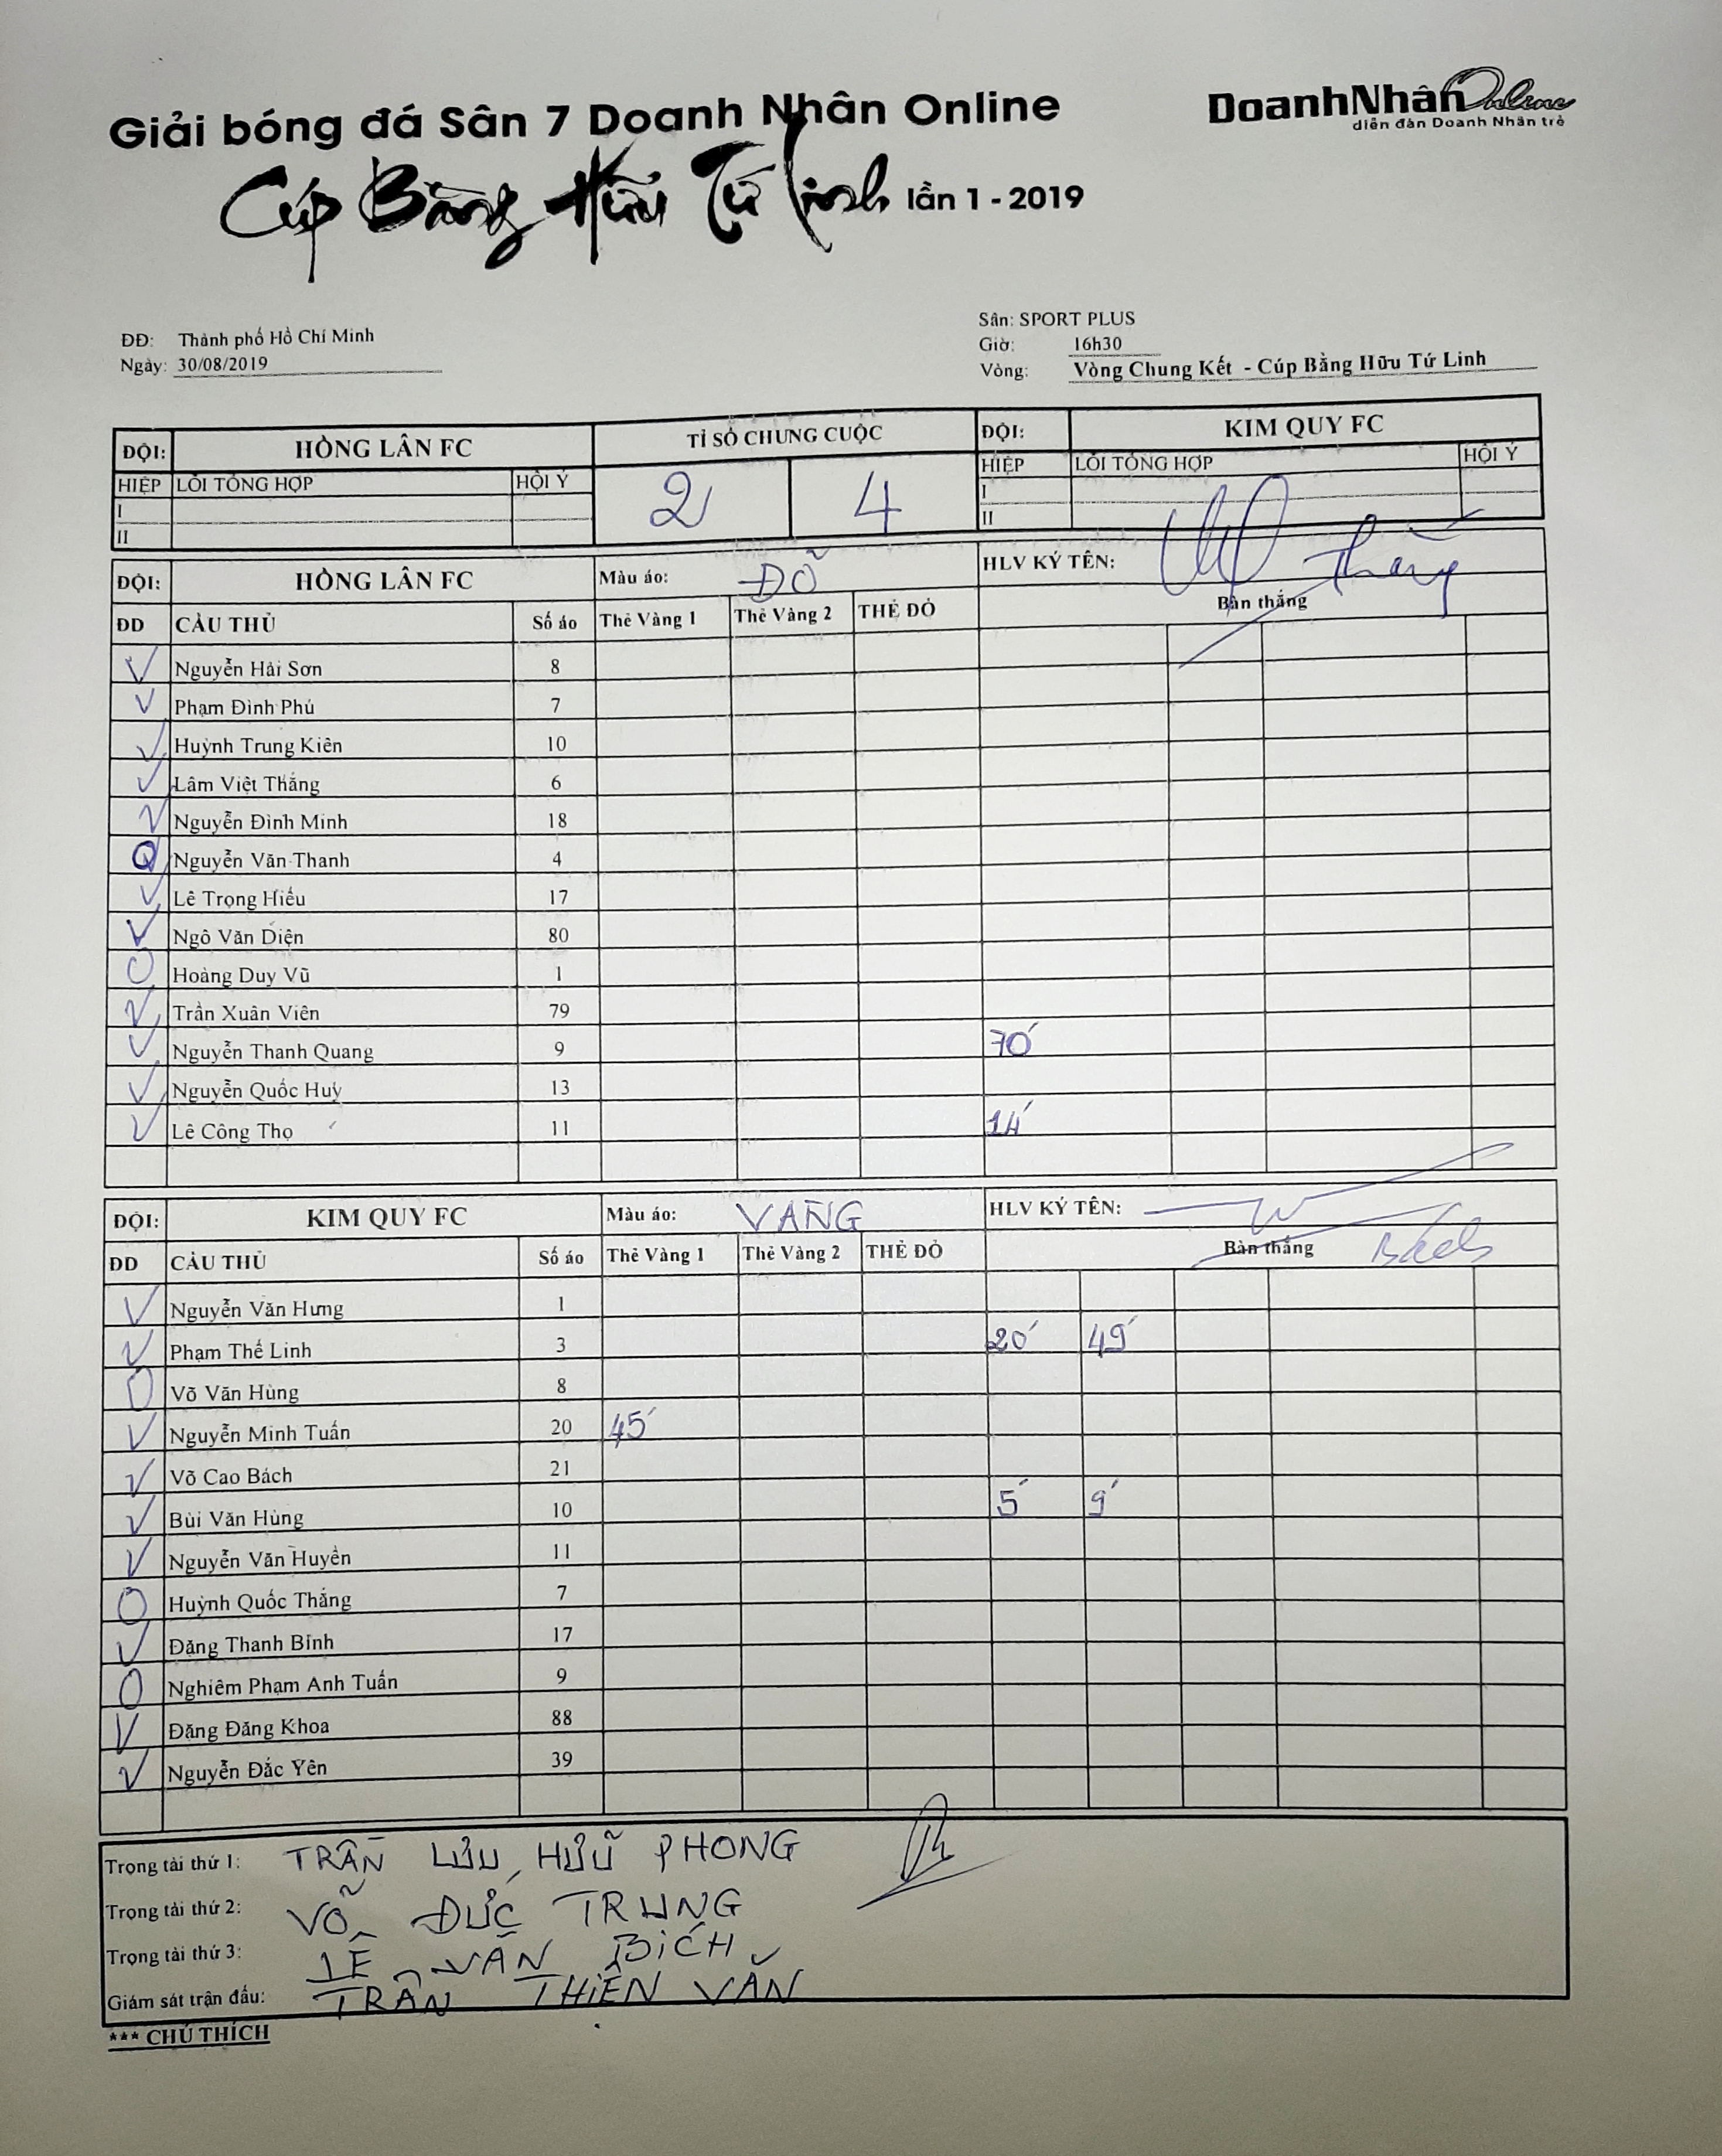 Giải bóng đá Sân 7 Doanh Nhân Online
DoanhNhân Online
diễn đàn Doanh Nhân trẻ
Cúp Bằng Hữu Tứ Linh lần 1 - 2019
ĐĐ: Thành phố Hồ Chí Minh
Ngày: 30/08/2019
Sân: SPORT PLUS
Giờ: 16h30
Vòng: Vòng Chung Kết - Cúp Bằng Hữu Tứ Linh
ĐỘI: HỒNG LÂN FC TỈ SỐ CHUNG CUỘC ĐỘI: KIM QUY FC
HIỆP LỖI TỔNG HỢP HỘI Ý 2 4 HIỆP LỖI TỔNG HỢP HỘI Ý
I I
II II
ĐỘI: HỒNG LÂN FC Màu áo: ĐỎ HLV KÝ TÊN: Thắng
ĐD CẦU THỦ Số áo Thẻ Vàng 1 Thẻ Vàng 2 THẺ ĐỎ Bàn thắng
V Nguyễn Hải Sơn 8
V Phạm Đình Phú 7
V Huỳnh Trung Kiên 10
V Lâm Việt Thắng 6
V Nguyễn Đình Minh 18
Nguyễn Văn Thanh 4
V Lê Trọng Hiếu 17
V Ngô Văn Diện 80
O Hoàng Duy Vũ 1
V Trần Xuân Viên 79
V Nguyễn Thanh Quang 9 70'
V Nguyễn Quốc Huy 13
V Lê Công Thọ 11 14'
ĐỘI: KIM QUY FC Màu áo: VÀNG HLV KÝ TÊN: Bách
ĐD CẦU THỦ Số áo Thẻ Vàng 1 Thẻ Vàng 2 THẺ ĐỎ Bàn thắng
V Nguyễn Văn Hưng 1
V Phạm Thế Linh 3 20' 49'
O Võ Văn Hùng 8
V Nguyễn Minh Tuấn 20 45'
V Võ Cao Bách 21
V Bùi Văn Hùng 10 5' 9'
V Nguyễn Văn Huyền 11
O Huỳnh Quốc Thắng 7
V Đặng Thanh Bình 17
O Nghiêm Phạm Anh Tuấn 9
V Đặng Đăng Khoa 88
V Nguyễn Đắc Yên 39
Trọng tài thứ 1: TRẦN LƯU HỮU PHONG
Trọng tài thứ 2: VÕ ĐỨC TRUNG
Trọng tài thứ 3: LÊ VĂN BÍCH
Giám sát trận đấu: TRẦN THIỆN VĂN
*** CHÚ THÍCH